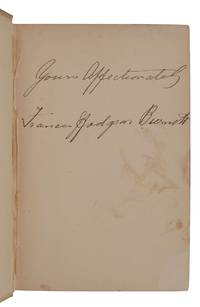 Yours Affectionately
Frances Hodgson Burnett